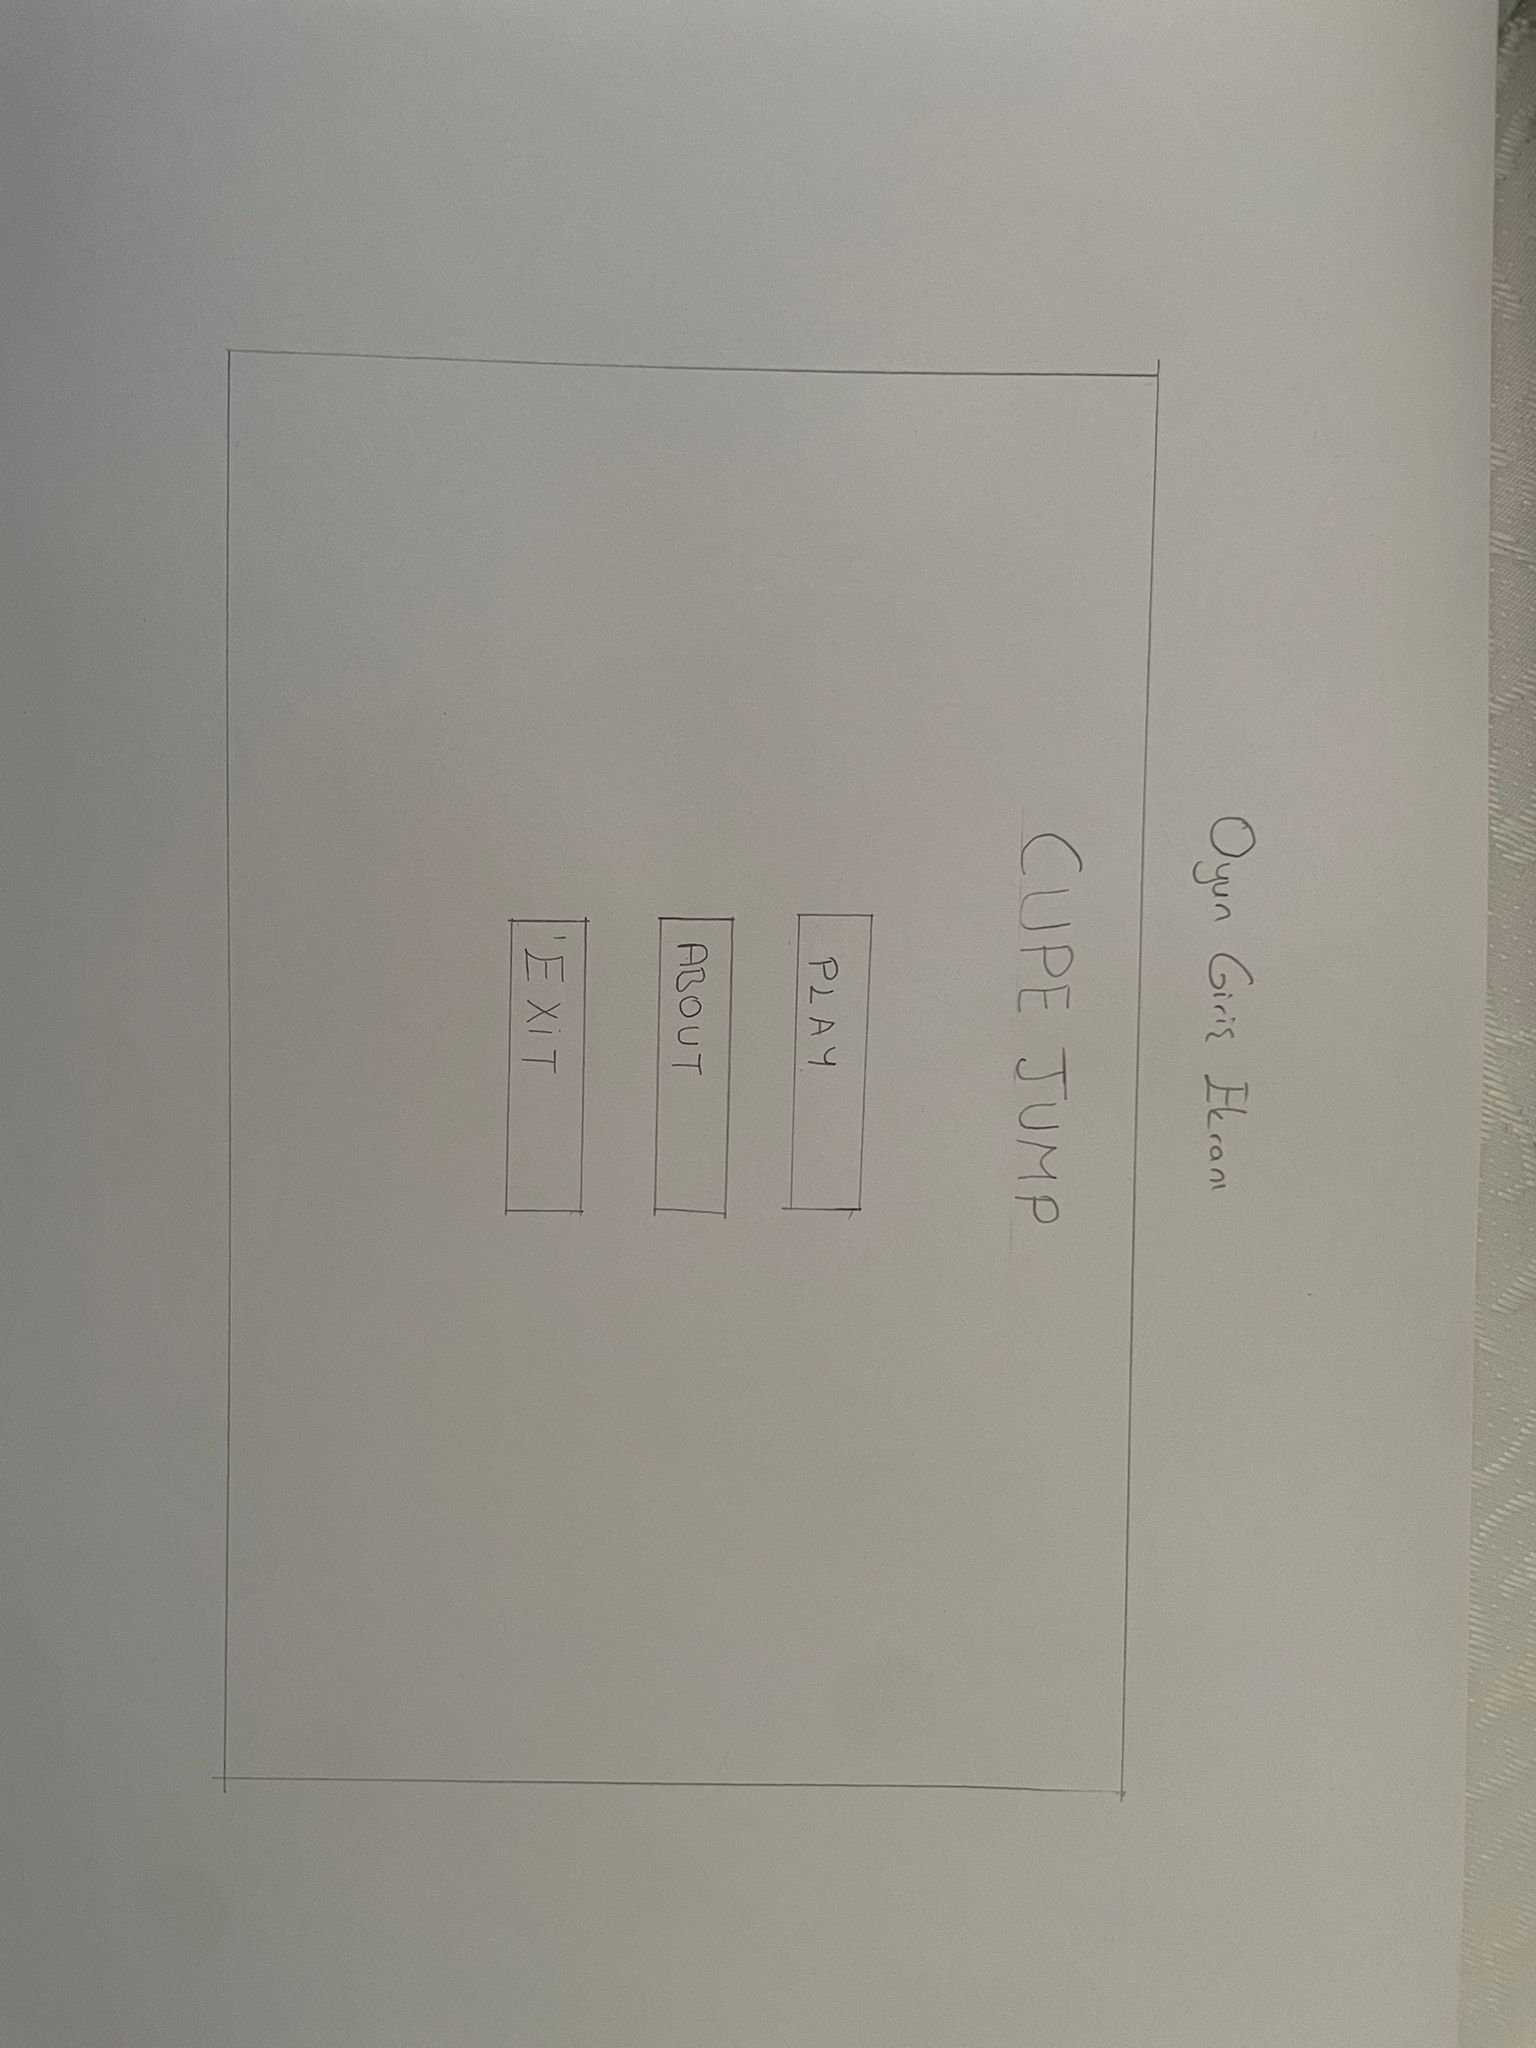 Oyun Giriş Ekranı
CUPE JUMP
PLAY
ABOUT
EXiT